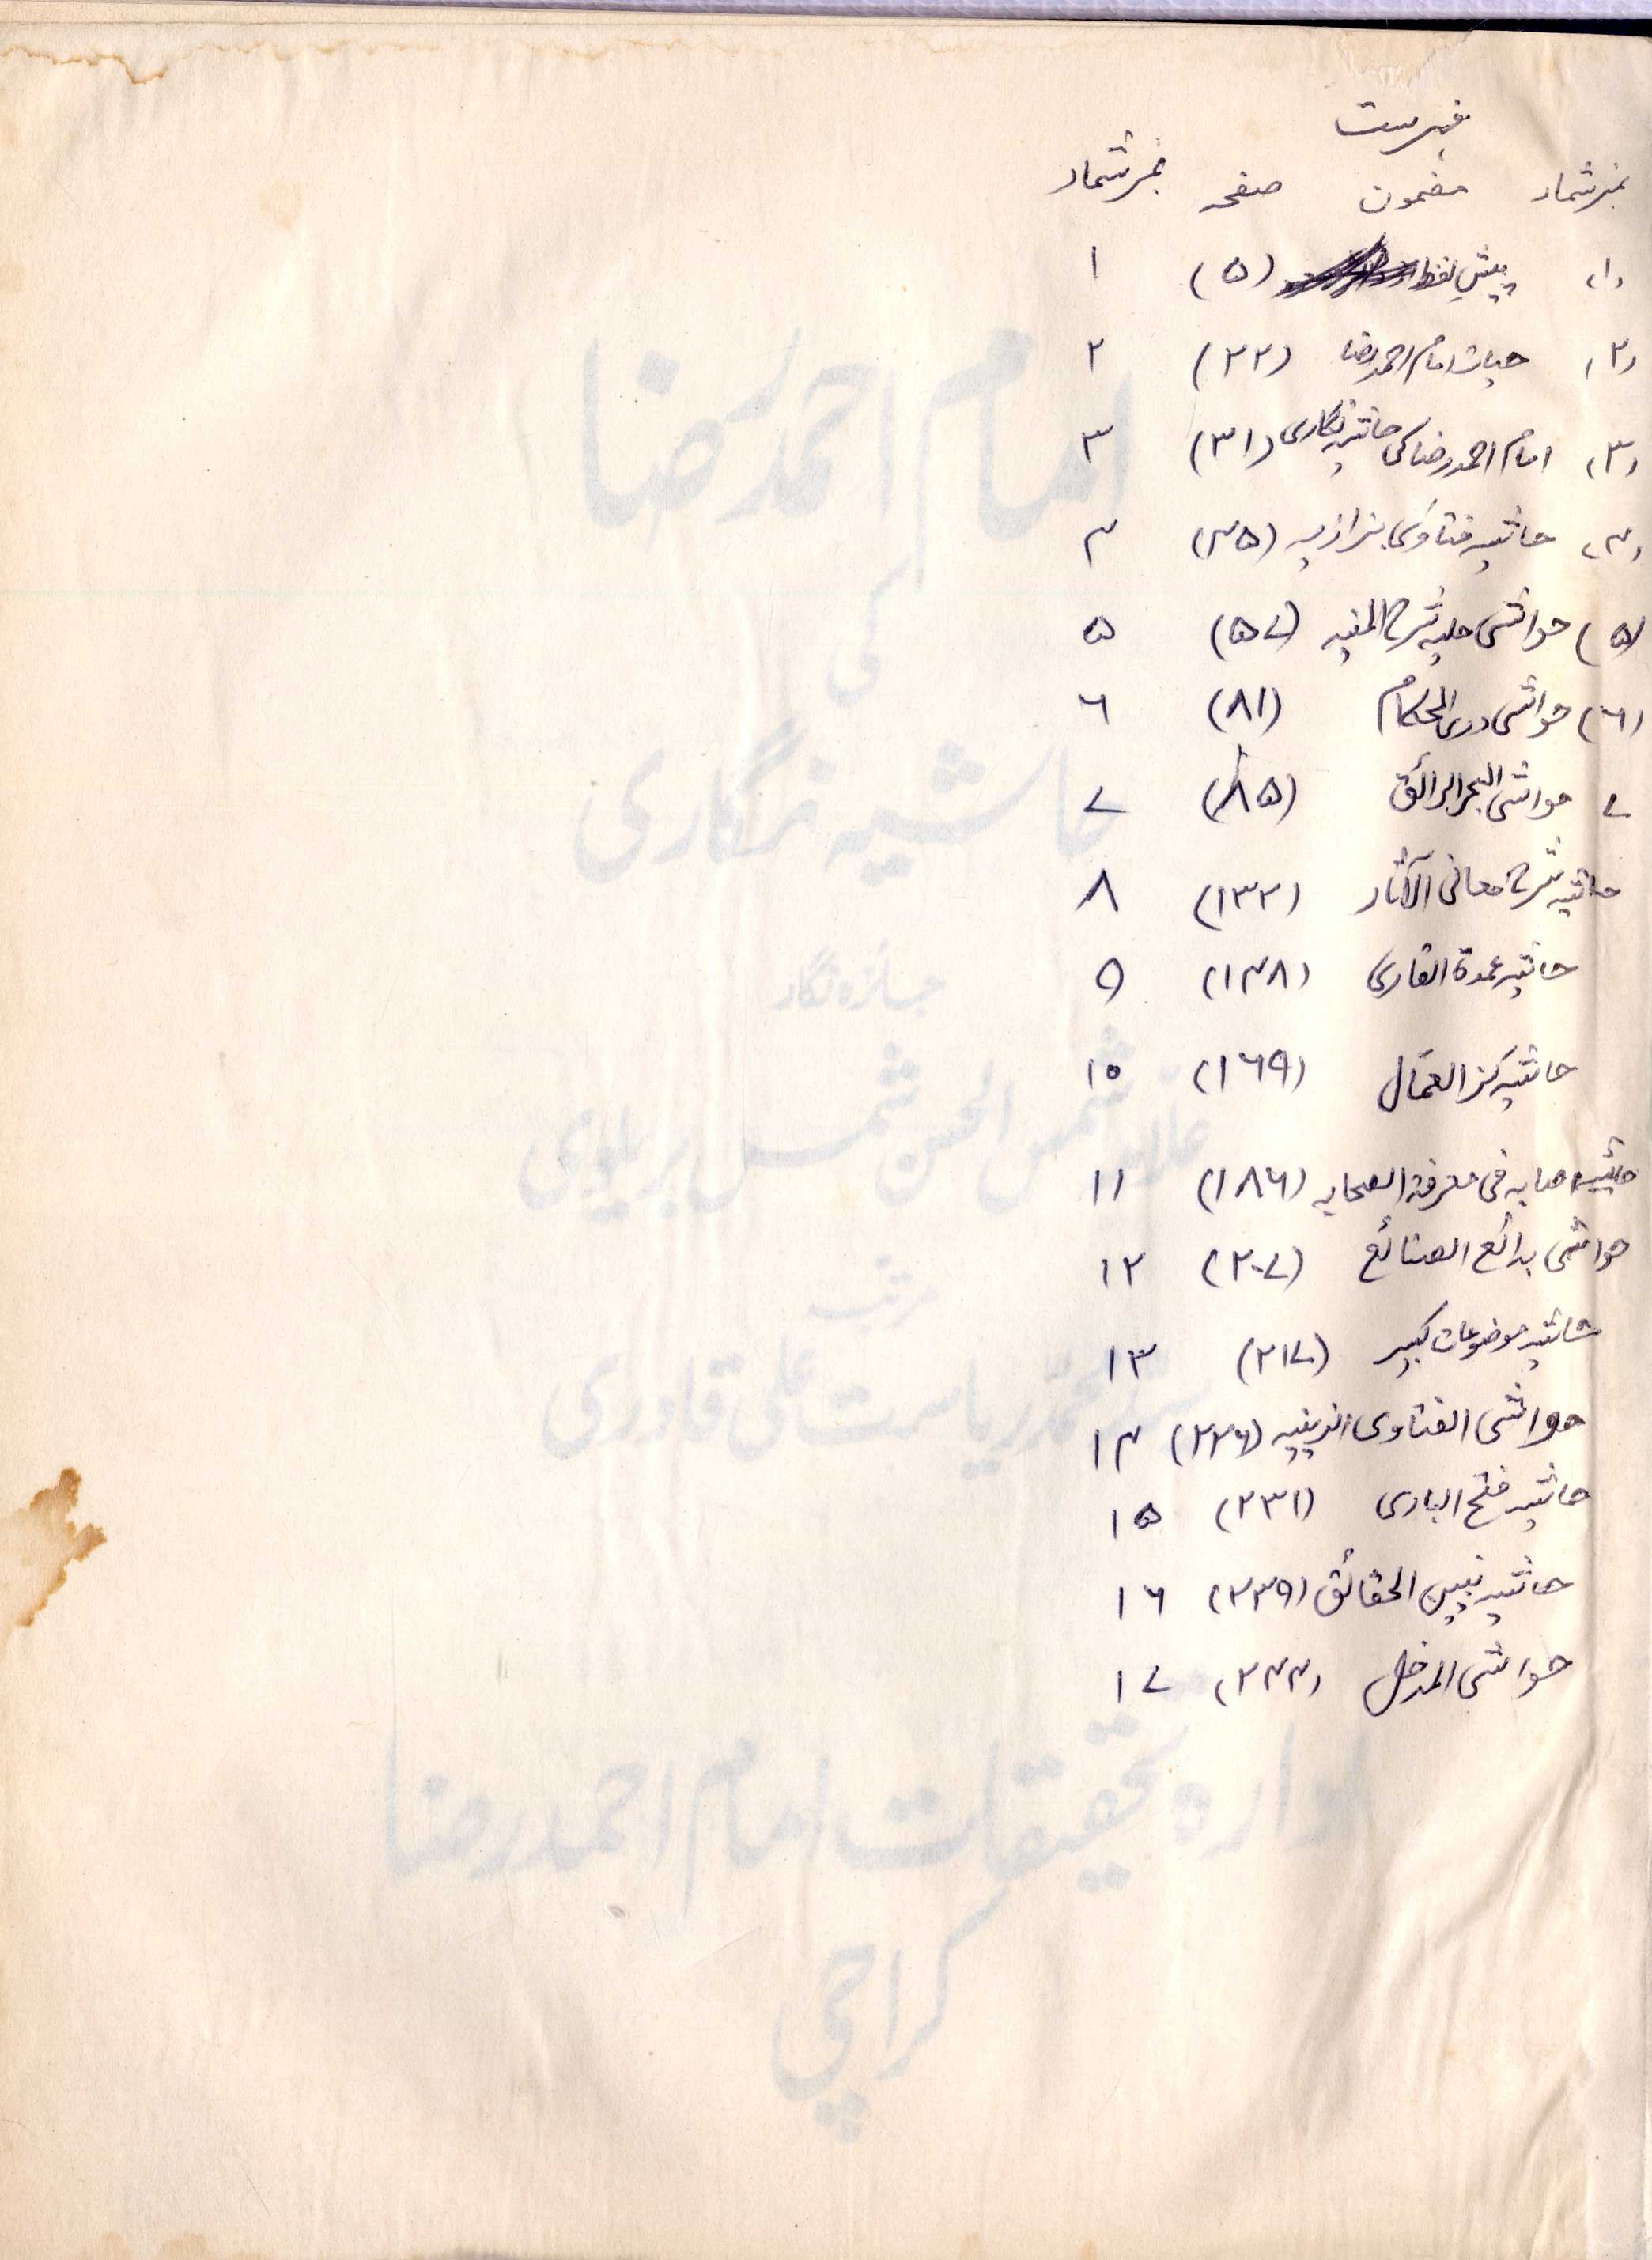 فہرست
نمبر شمار مضمون صفحہ نمبر شمار
(۱) پیش لفظ (۵) ۱
(۲) حیات امام احمد رضا (۲۲) ۲
(۳) امام احمد رضا کی حاشیہ نگاری (۳۱) ۳
(۴) حاشیہ فتاوی بزازیہ (۴۵) ۴
(۵) حواشی حلیہ شرح المنیہ (۵۷) ۵
(۶) حواشی درر الحکام (۸۱) ۶
۷ حواشی البحر الرائق (۸۵) ۷
حاشیہ شرح معانی الآثار (۱۳۲) ۸
حاشیہ عمدۃ القاری (۱۴۸) ۹
حاشیہ کنز العمّال (۱۶۹) ۱۰
حاشیہ اصابہ فی معرفۃ الصحابہ (۱۸۶) ۱۱
حواشی بدائع الصنائع (۲۰۷) ۱۲
حاشیہ موضوعات کبیر (۲۱۷) ۱۳
حواشی الفتاوی الزینیہ (۲۲۶) ۱۴
حاشیہ فتح الباری (۲۳۱) ۱۵
حاشیہ تبیین الحقائق (۲۳۹) ۱۶
حواشی المدخل (۲۴۴) ۱۷
امام احمد رضا
کی
حاشیہ نگاری
جائزہ نگار
علامہ شمس الحسن شمس بریلوی
مرتبہ
سید محمد ریاست علی قادری
ادارہ تحقیقات امام احمد رضا
کراچی